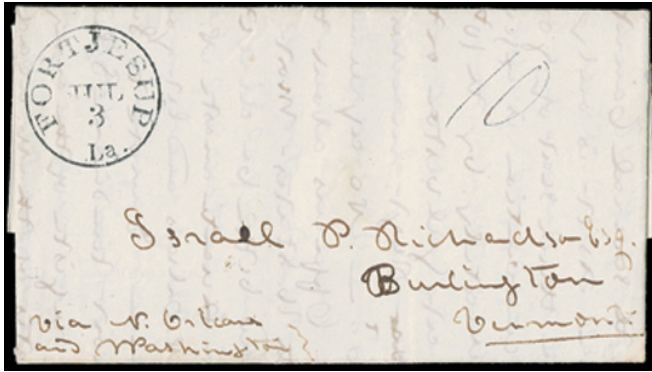 FORT JESUP
JUL
3
La.
10
Israel P. Richardson Esq.
Burlington
Vermont.
Via N. Orleans
and Washington